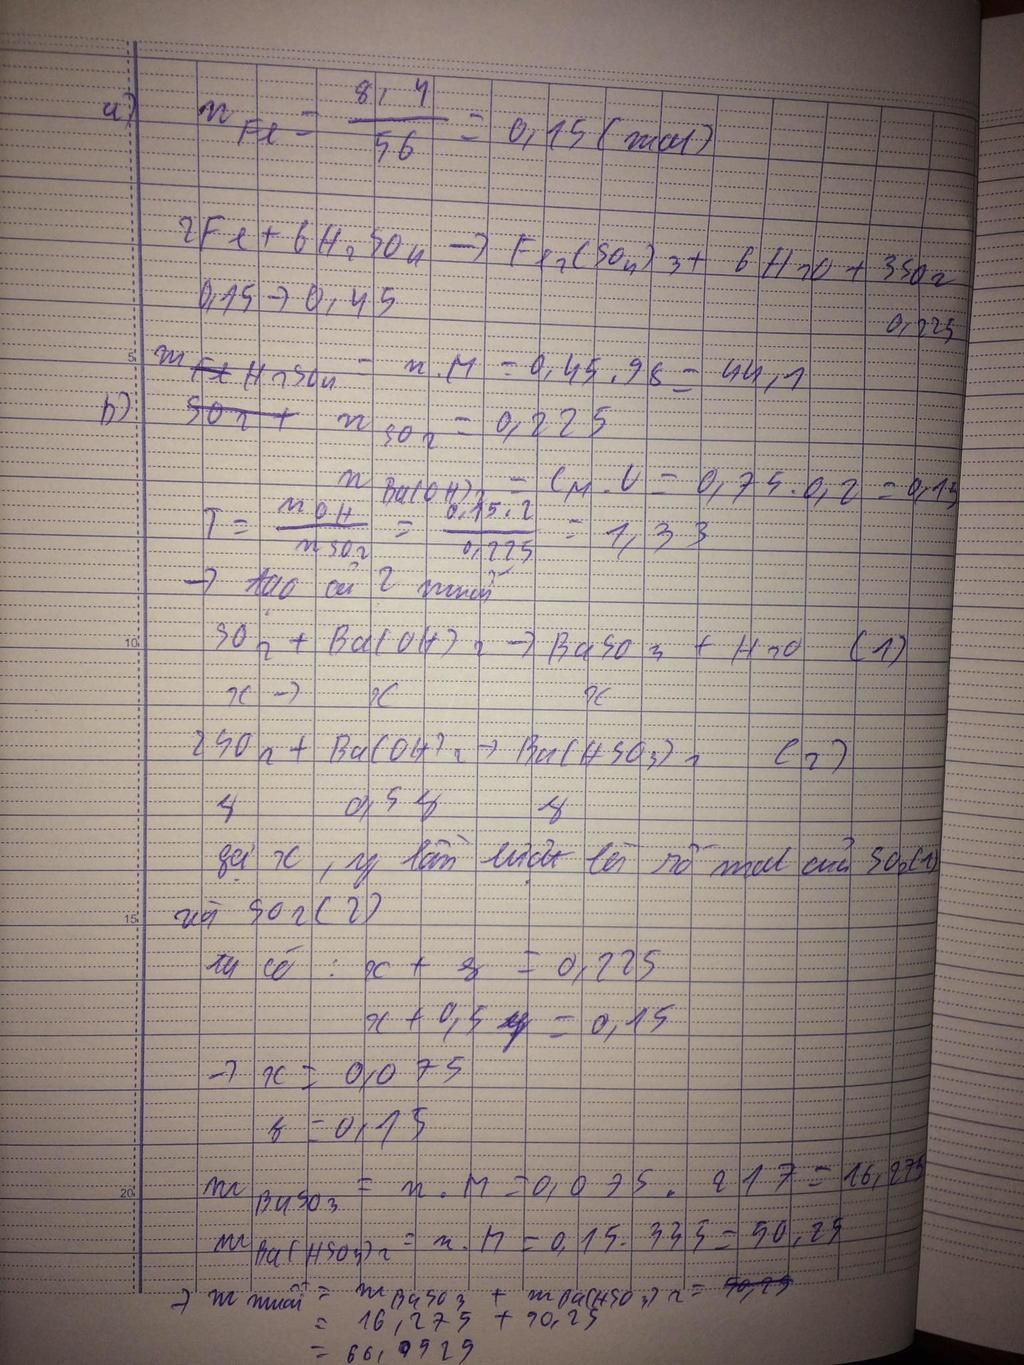 a) n Fe = 8,4 / 56 = 0,15 (mol)
2Fe + 6H2SO4 → Fe2(SO4)3 + 6H2O + 3SO2
0,15 → 0,45 0,225
5
m Fe H2SO4 = n.M = 0,45.98 = 44,1
b) SO2 + n SO2 = 0,225
n Ba(OH)2 = CM.V = 0,75.0,2 = 0,15
T = nOH / nSO2 = 0,15.2 / 0,225 = 1,33
→ tạo cả 2 muối
10
SO2 + Ba(OH)2 → BaSO3 + H2O (1)
x → x x
2SO2 + Ba(OH)2 → Ba(HSO3)2 (2)
y 0,5y y
gọi x, y lần lượt là số mol của SO2(1)
15
và SO2(2)
ta có : x + y = 0,225
x + 0,5 y = 0,15
→ x = 0,075
y = 0,15
20
m BaSO3 = n.M = 0,075.217 = 16,275
m Ba(HSO3)2 = n.M = 0,15.335 = 50,25
→ m muối = m BaSO3 + m Ba(HSO3)2 = 50,25
= 16,275 + 50,25